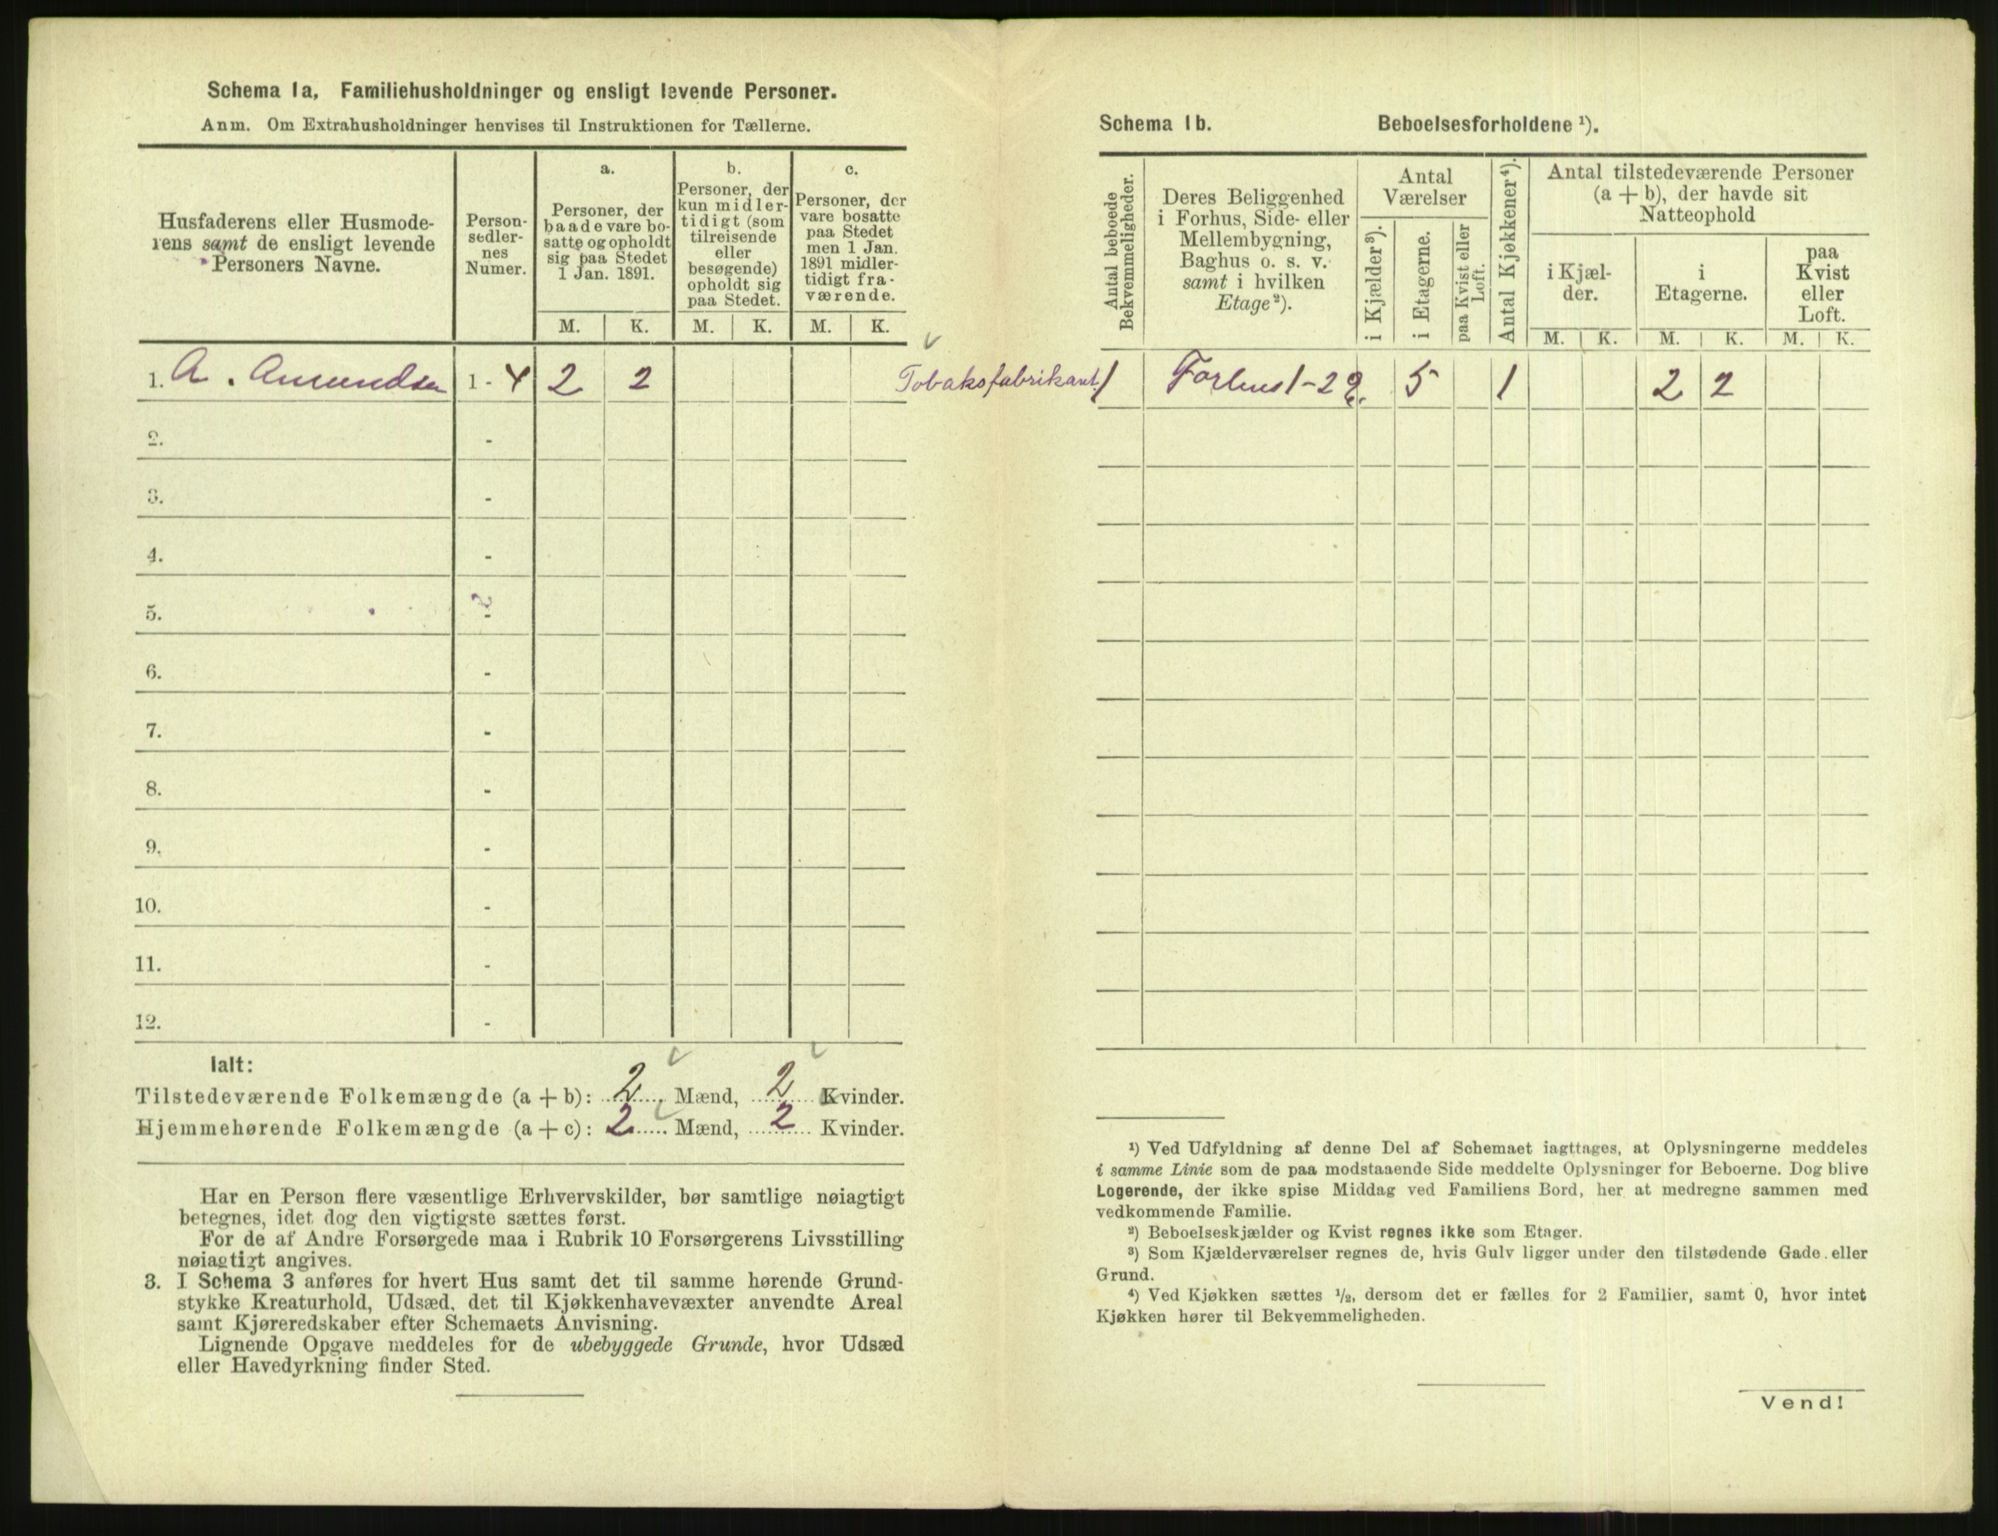 Schema 1a, Familiehusholdninger og ensligt levende Personer.
Anm. Om Extrahusholdninger henvises til Instruktionen for Tællerne.
Husfaderens eller Husmode-
rens samt de ensligt levende
Personers Navne.
Person-
sedler-
nes
Numer.
a.
Personer, der
baade vare bo-
satte og opholdt
sig paa Stedet
1 Jan. 1891.
b.
Personer, der
kun midler-
tidigt (som
tilreisende
eller
besøgende)
opholdt sig
paa Stedet.
c.
Personer, der
vare bosatte
paa Stedet
men 1 Jan.
1891 midler-
tidigt fra-
værende.
M. K. M. K. M. K.
1. A. Amundsen 1 - 4 2 2 Tobaksfabrikant
2. -
3. -
4. -
5. -
6. -
7. -
8. -
9. -
10. -
11. -
12. -
Ialt:
Tilstedeværende Folkemængde (a + b): 2 Mænd, 2 Kvinder.
Hjemmehørende Folkemængde (a + c): 2 Mænd, 2 Kvinder.
Har en Person flere væsentlige Erhvervskilder, bør samtlige nøiagtigt
betegnes, idet dog den vigtigste sættes først.
For de af Andre Forsørgede maa i Rubrik 10 Forsørgerens Livsstilling
nøiagtigt angives.
3. I Schema 3 anføres for hvert Hus samt det til samme hørende Grund-
stykke Kreaturhold, Udsæd, det til Kjøkkenhavevæxter anvendte Areal
samt Kjøreredskaber efter Schemaets Anvisning.
Lignende Opgave meddeles for de ubebyggede Grunde, hvor Udsæd
eller Havedyrkning finder Sted.
Schema 1b. Beboelsesforholdene ¹).
Antal beboede
Bekvemmeligheder.
Deres Beliggenhed
i Forhus, Side- eller
Mellembygning,
Baghus o. s. v.
samt i hvilken
Etage²).
Antal
Værelser
i Kjælder³).
i Etagerne.
paa Kvist eller
Loft.
Antal Kjøkkener⁴).
Antal tilstedeværende Personer
(a + b), der havde sit
Natteophold
i Kjæl-
der.
i
Etagerne.
paa
Kvist
eller
Loft.
M. K. M. K. M. K.
1 Forhus 1-2 e. 5 1 2 2
¹) Ved Udfyldning af denne Del af Schemaet iagttages, at Oplysningerne meddeles
i samme Linie som de paa modstaaende Side meddelte Oplysninger for Beboerne. Dog blive
Logerende, der ikke spise Middag ved Familiens Bord, her at medregne sammen med
vedkommende Familie.
²) Beboelseskjælder og Kvist regnes ikke som Etager.
³) Som Kjælderværelser regnes de, hvis Gulv ligger under den tilstødende Gade eller
Grund.
⁴) Ved Kjøkken sættes ½, dersom det er fælles for 2 Familier, samt 0, hvor intet
Kjøkken hører til Bekvemmeligheden.
Vend!